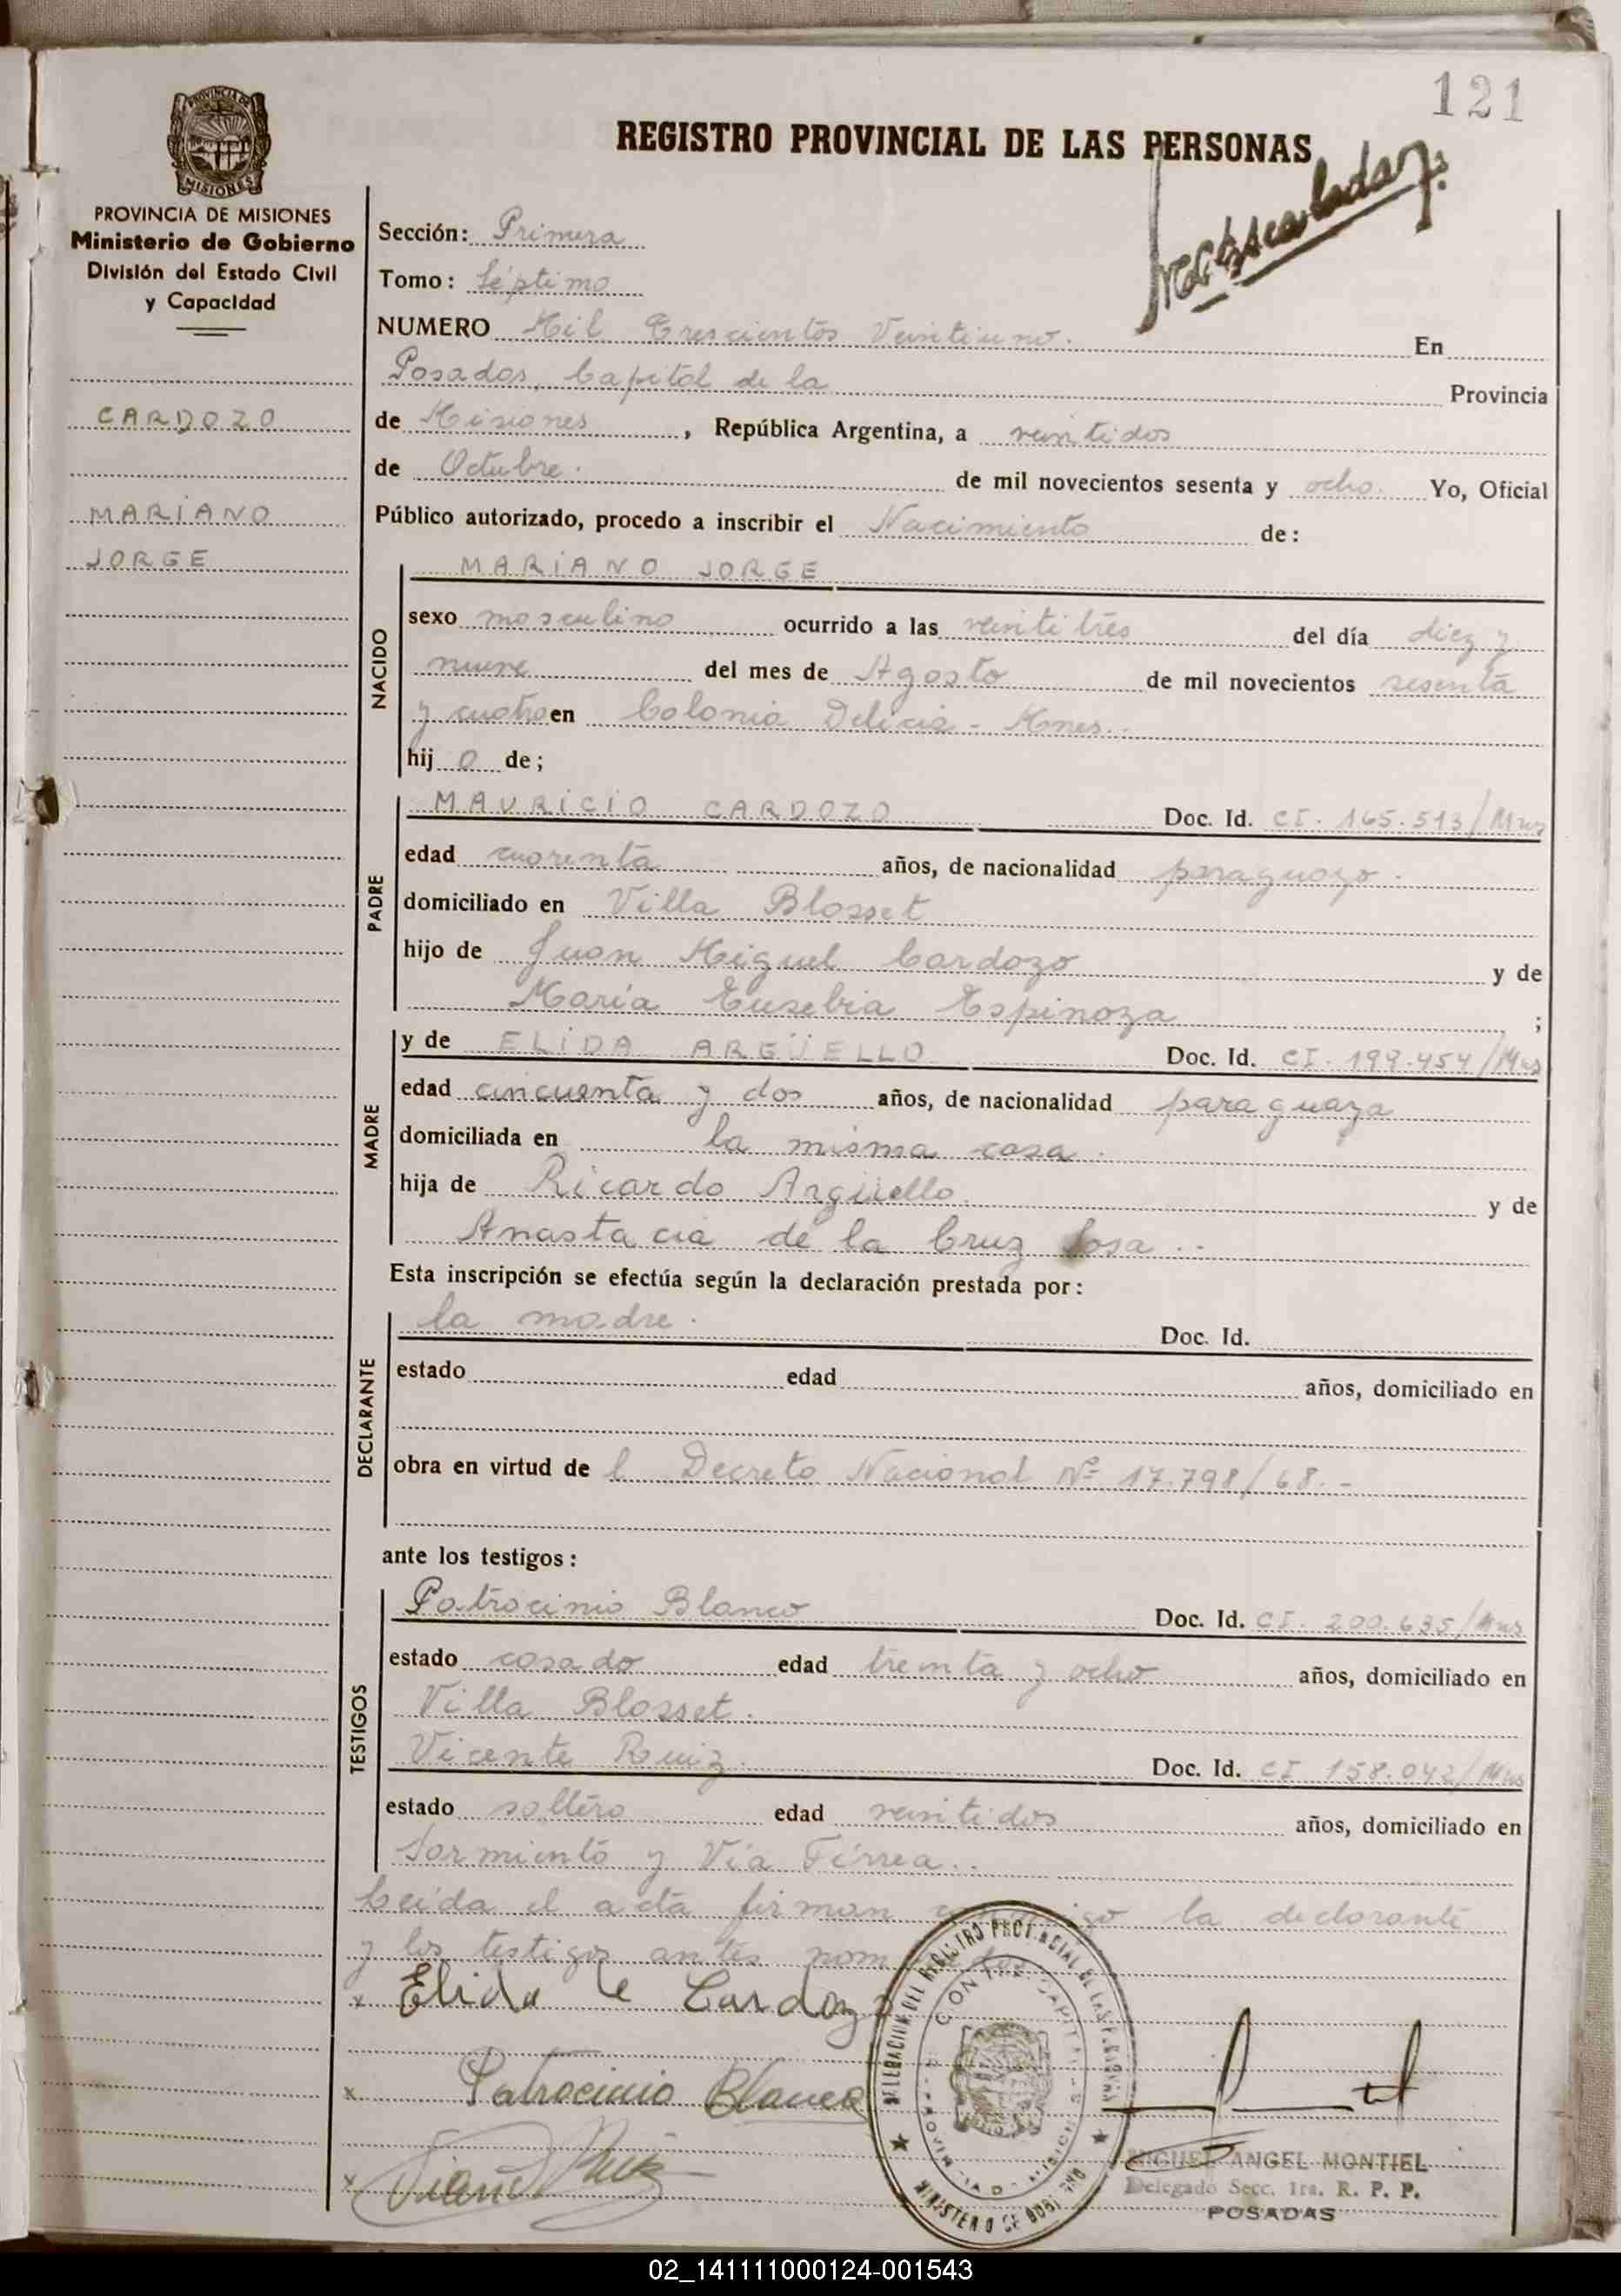 121
REGISTRO PROVINCIAL DE LAS PERSONAS
PROVINCIA DE
MISIONES
PROVINCIA DE MISIONES
Ministerio de Gobierno
División del Estado Civil
y Capacidad
CARDOZO
MARIANO
JORGE
Sección: Primera
Tomo: Séptimo
NUMERO Mil Trescientos Veintiuno. En
Posadas, Capital de la Provincia
de Misiones, República Argentina, a veintidos
de Octubre. de mil novecientos sesenta y ocho. Yo, Oficial
Público autorizado, procedo a inscribir el Nacimiento de:
NACIDO
MARIANO JORGE
sexo masculino ocurrido a las veintitrés del día diez y
nueve del mes de Agosto de mil novecientos sesenta
y cuatro en Colonia Delicia - Mnes.
hij o de;
PADRE
MAURICIO CARDOZO Doc. Id. CI. 165.513/Mns
edad cuarenta años, de nacionalidad paraguayo.
domiciliado en Villa Blosset
hijo de Juan Miguel Cardozo y de
María Eusebia Espinoza ;
MADRE
y de ELIDA ARGÜELLO Doc. Id. CI. 199.454/Mns
edad cincuenta y dos años, de nacionalidad paraguaya
domiciliada en la misma casa.
hija de Ricardo Argüello y de
Anastacia de la Cruz Sosa..
Esta inscripción se efectúa según la declaración prestada por:
DECLARANTE
la madre. Doc. Id.
estado edad años, domiciliado en
obra en virtud de l Decreto Nacional Nº 17.798/68.-
ante los testigos:
TESTIGOS
Patrocinio Blanco Doc. Id. CI. 200.635/Mns
estado casado edad treinta y ocho años, domiciliado en
Villa Blosset.
Vicente Ruiz. Doc. Id. CI 158.042/Mns
estado soltero edad veintidos años, domiciliado en
Sarmiento y Vía Férrea..
Leída el acta firman la declarante
y los testigos antes
x Elida Cardozo
x Patrocinio Blanco
x Ruiz
DELEGACION DEL REGISTRO PROVINCIAL DE LAS PERSONAS
MINISTERIO DE GOBIERNO
MIGUEL ANGEL MONTIEL
Delegado Secc. 1ra. R. P. P.
POSADAS
02_141111000124-001543